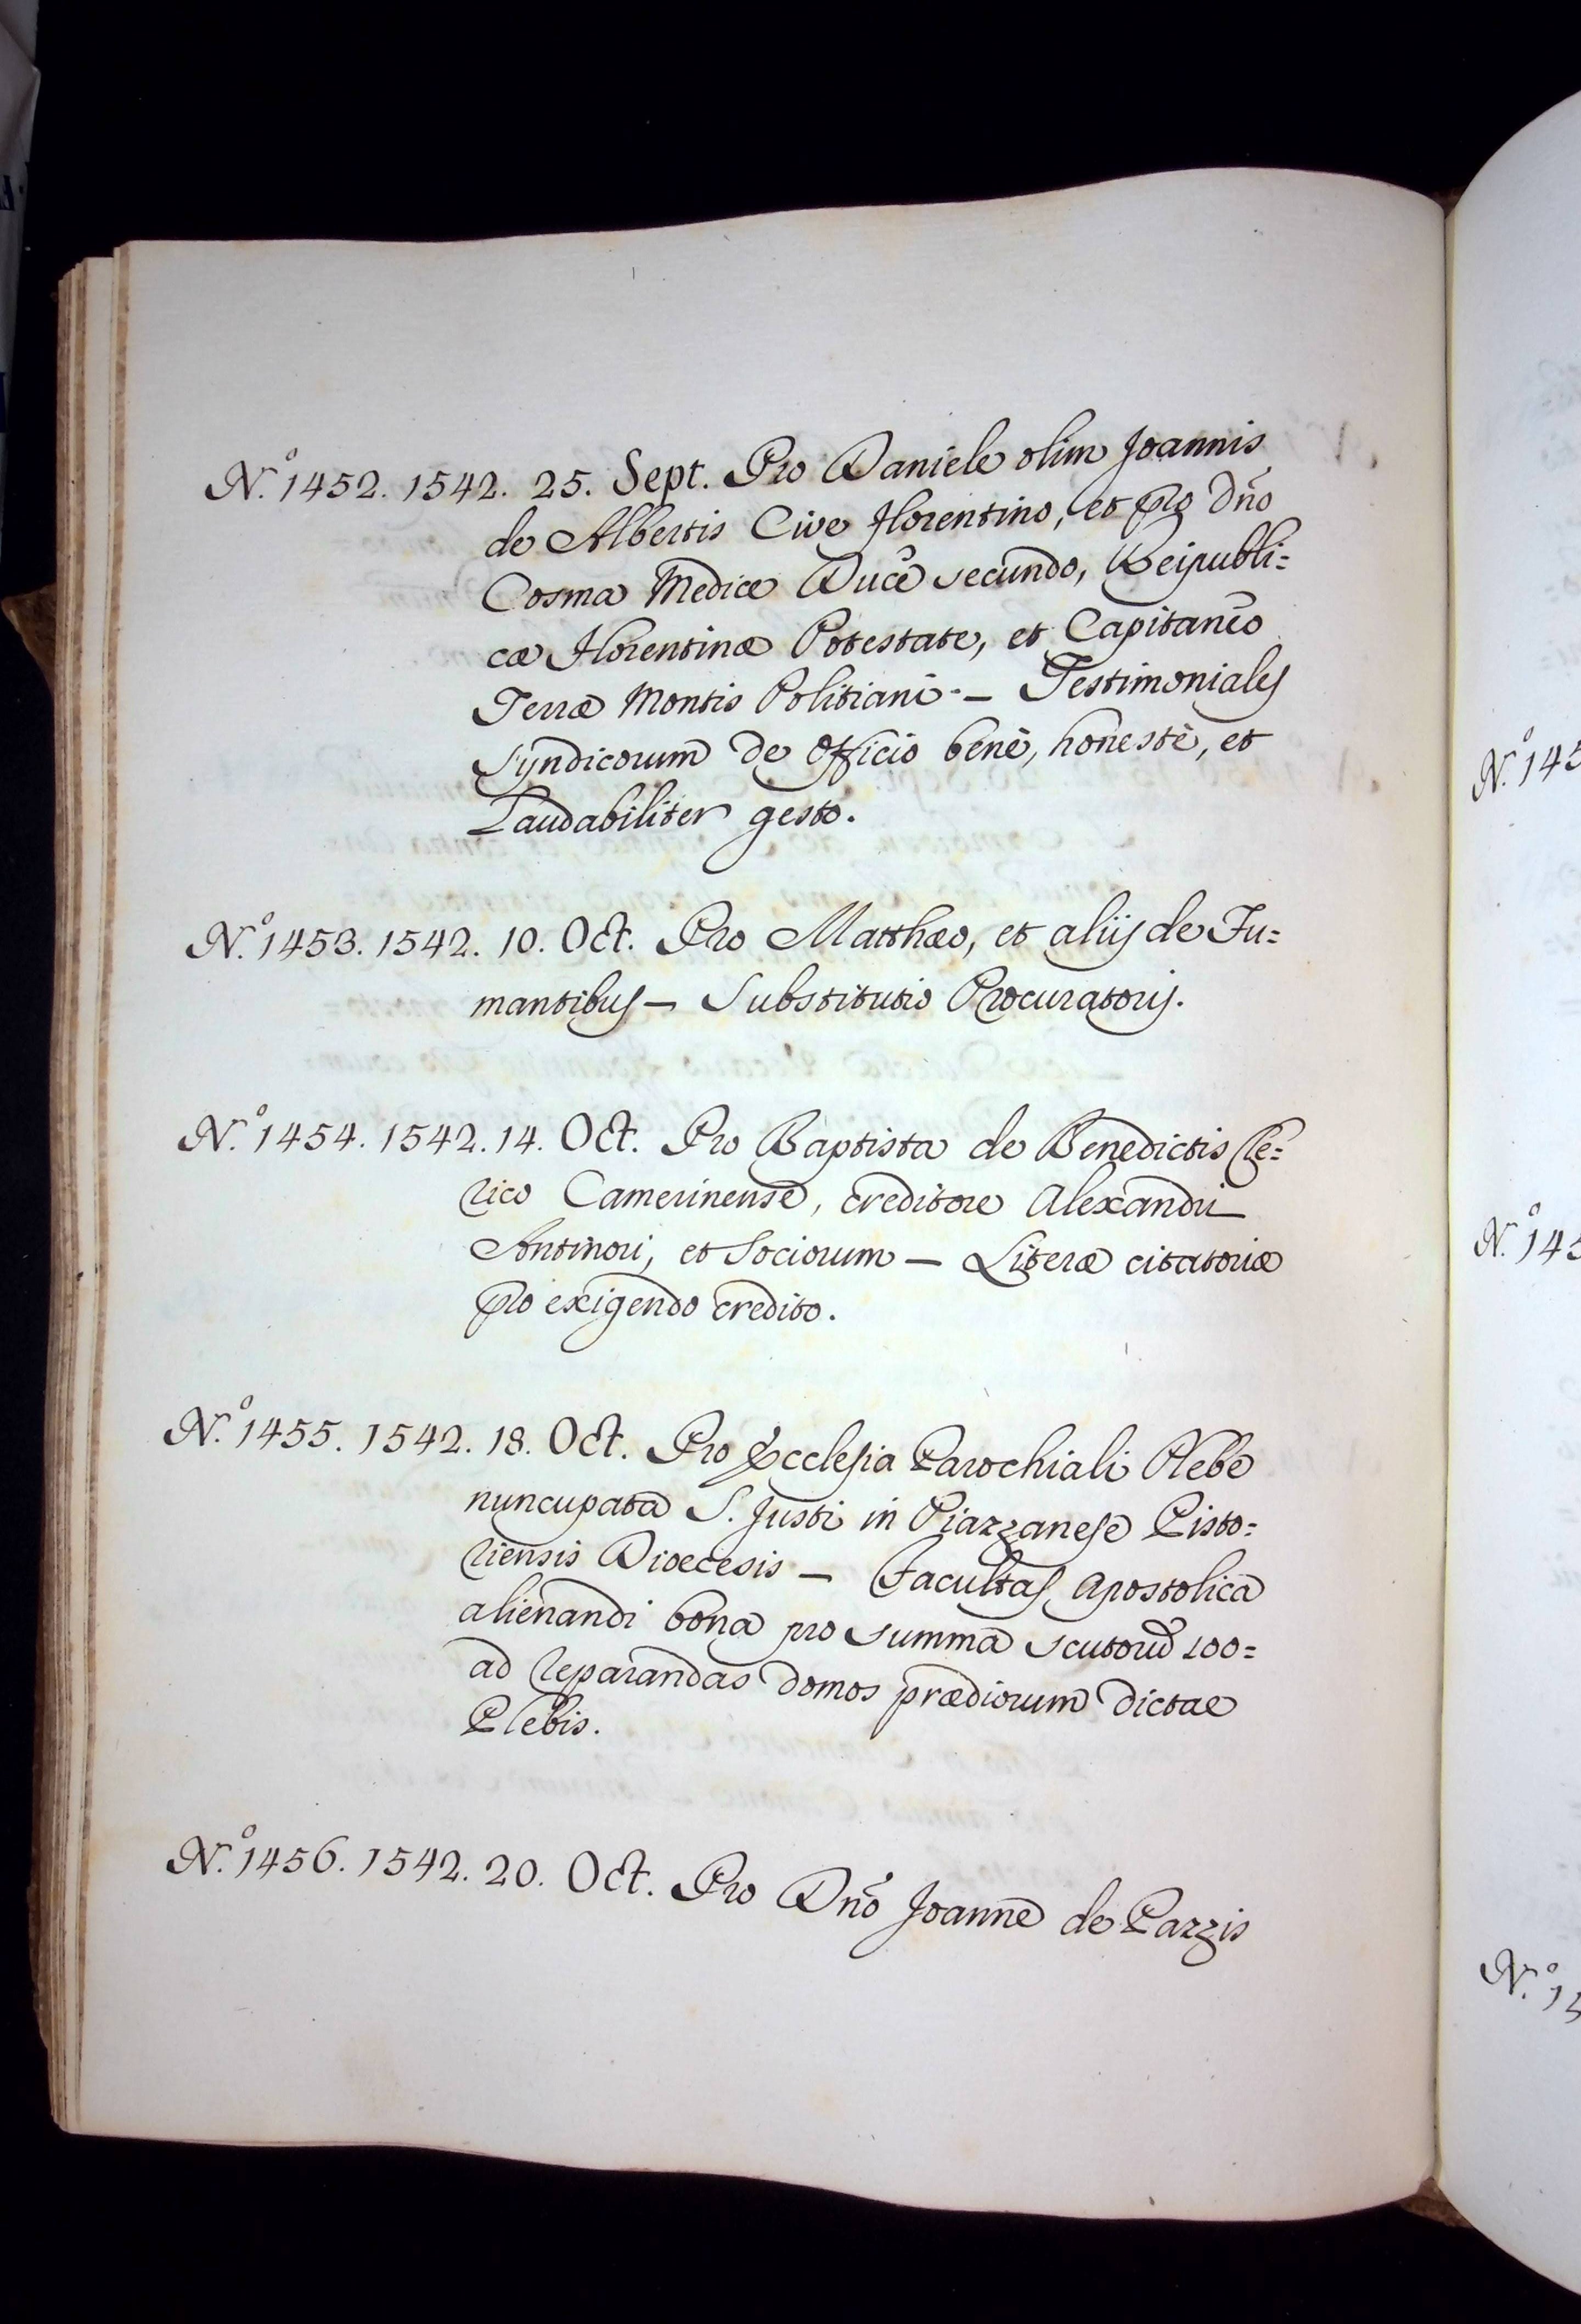 N.º 1452. 1542. 25. Sept. Pro Daniele olim Joannis
de Albertis Cive Florentino, et pro Dño
Cosma Medice Duce secundo, Reipubli=
cæ Florentinæ Potestate, et Capitaneo
Terræ Montis Politiani - Testimoniales
Syndicorum de officio benè, honestè, et
Laudabiliter gesto.
N.º 1453. 1542. 10. Oct. Pro Matthæo, et aliis de Fu=
mantibus - Substitutio Procuratoris.
N.º 1454. 1542. 14. Oct. Pro Baptista de Benedictis Cle=
rico Camerinense, creditore Alexandri
Antinori, et Sociorum - Literæ citatoriæ
pro exigendo credito.
N.º 1455. 1542. 18. Oct. Pro Ecclesia Parochiali Plebe
nuncupata S. Justi in Piazzanese Pisto=
riensis Dioecesis - Facultas Apostolica
alienandi bona pro summa scutorũ 100=
ad reparandas domos prædiorum dictae
Plebis.
N.º 1456. 1542. 20. Oct. Pro Dño Joanne de Pazzis
N.º 145
N.º 145
N.º 14